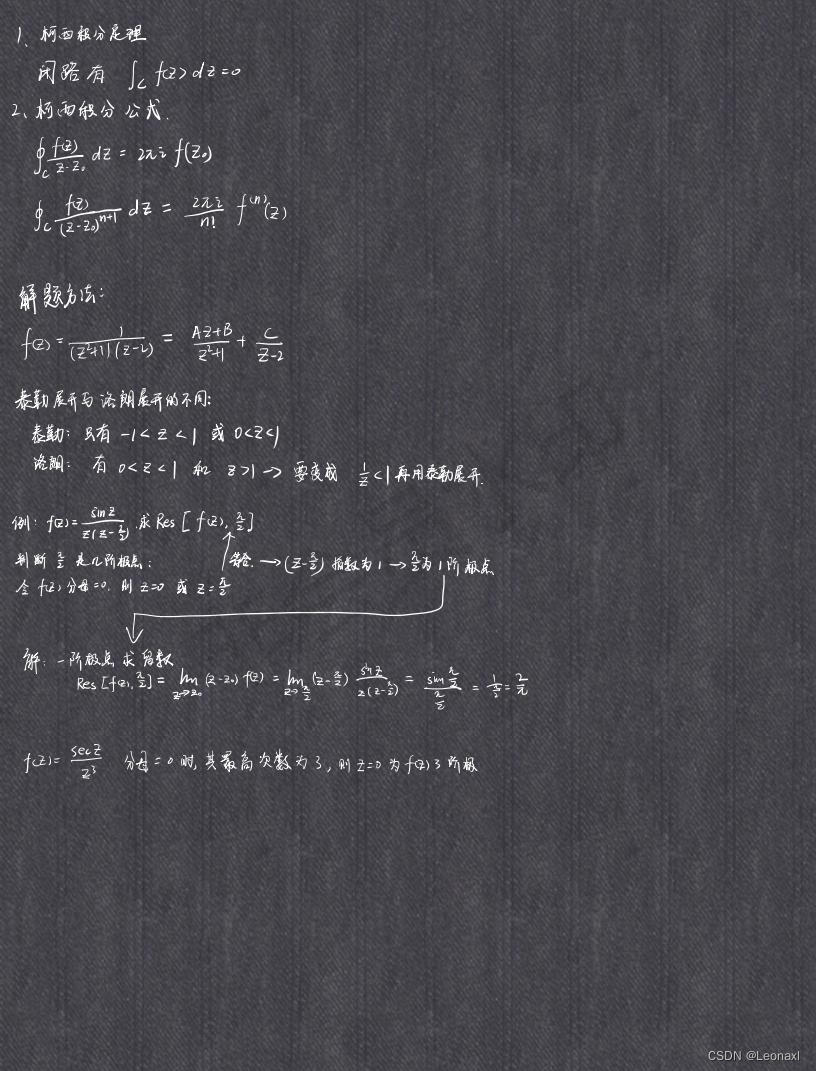 1、柯西积分定理
闭路有 ∫_C f(z) dz = 0
2、柯西积分公式.
∮_C f(z)/(z-z₀) dz = 2πi f(z₀)
∮_C f(z)/(z-z₀)^(n+1) dz = 2πi/n! f^(n)(z)
解题方法:
f(z) = 1/((z²+1)(z-2)) = (Az+B)/(z²+1) + C/(z-2)
泰勒展开与洛朗展开的不同:
泰勒: 只有 -1<z<1 或 0<z<1
洛朗: 有 0<z<1 和 z>1 → 要变成 1/z<1 再用泰勒展开.
例: f(z) = sin z/(z(z-π/2)) .求 Res[f(z), π/2]
判断 π/2 是几阶极点: → (z-π/2) 指数为1 → π/2为1阶极点
令 f(z)分母=0, 则 z=0 或 z=π/2
解: 一阶极点求留数
Res[f(z), π/2] = lim_(z→z₀) (z-z₀) f(z) = lim_(z→π/2) (z-π/2) sin z/(z(z-π/2)) = sin π/2/(π/2) = 1/(π/2) = 2/π
f(z) = sec z/z³ 分母=0时, 其最高次数为3, 则 z=0 为 f(z) 3阶极
CSDN @Leonaxl